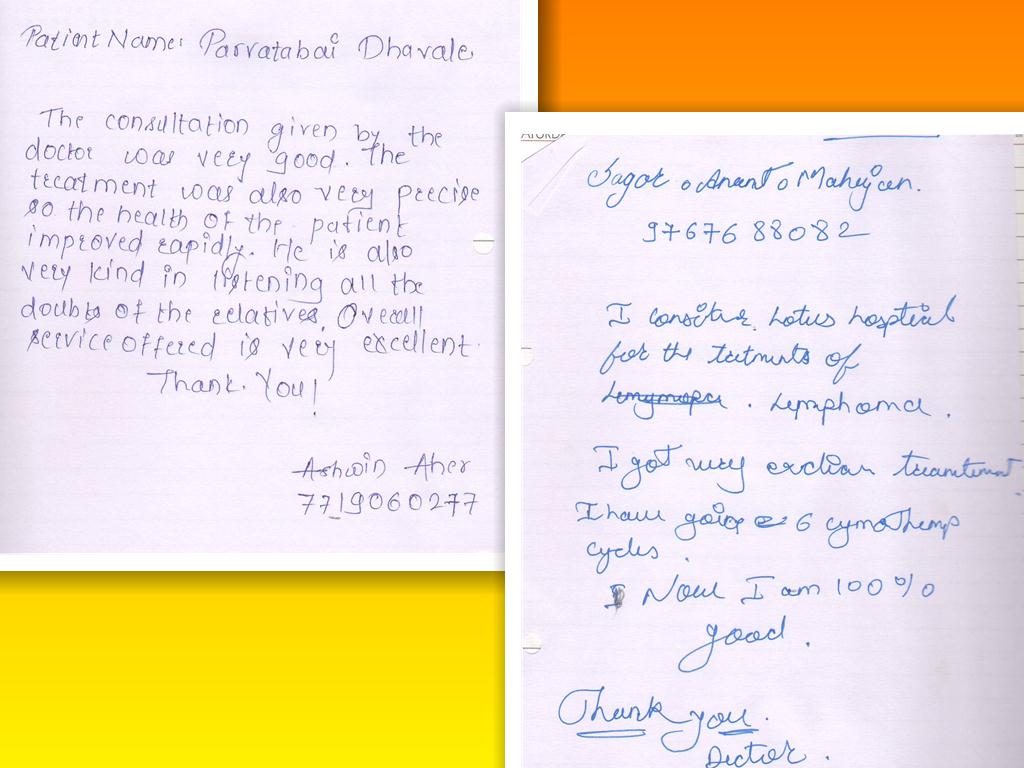 Patient Name: Parvatabai Dhavale
The consultation given by the
doctor was very good. The
treatment was also very precise
so the health of the patient
improved rapidly. He is also
very kind in listening all the
doubts of the relatives. Overall
service offered is very excellent.
Thank You!
Ashwin Aher
7719060277
Sagar Anant Mahajan.
9767688082
I Lotus hospital
for the tretments of
Lymphoma.
I got very
I have going 6 cymothemp
cycles.
I Now I am 100%
good.
Thank you.
Doctor.